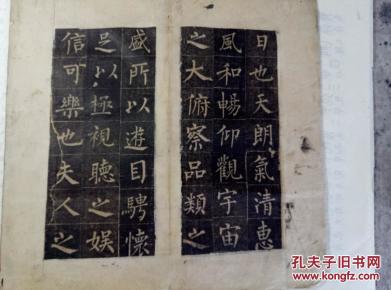 日也天朗氣清惠
風和暢仰觀宇宙
之大俯察品類之
盛所以遊目騁懷
足以極視聽之娛
信可樂也夫人之
孔夫子旧书网